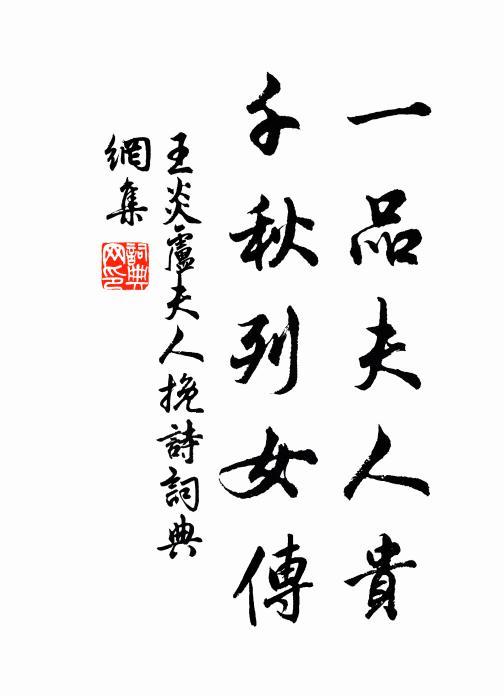 一品夫人貴
千秋列女傳
王炎盧夫人挽詩詞典
網集
詞典网印